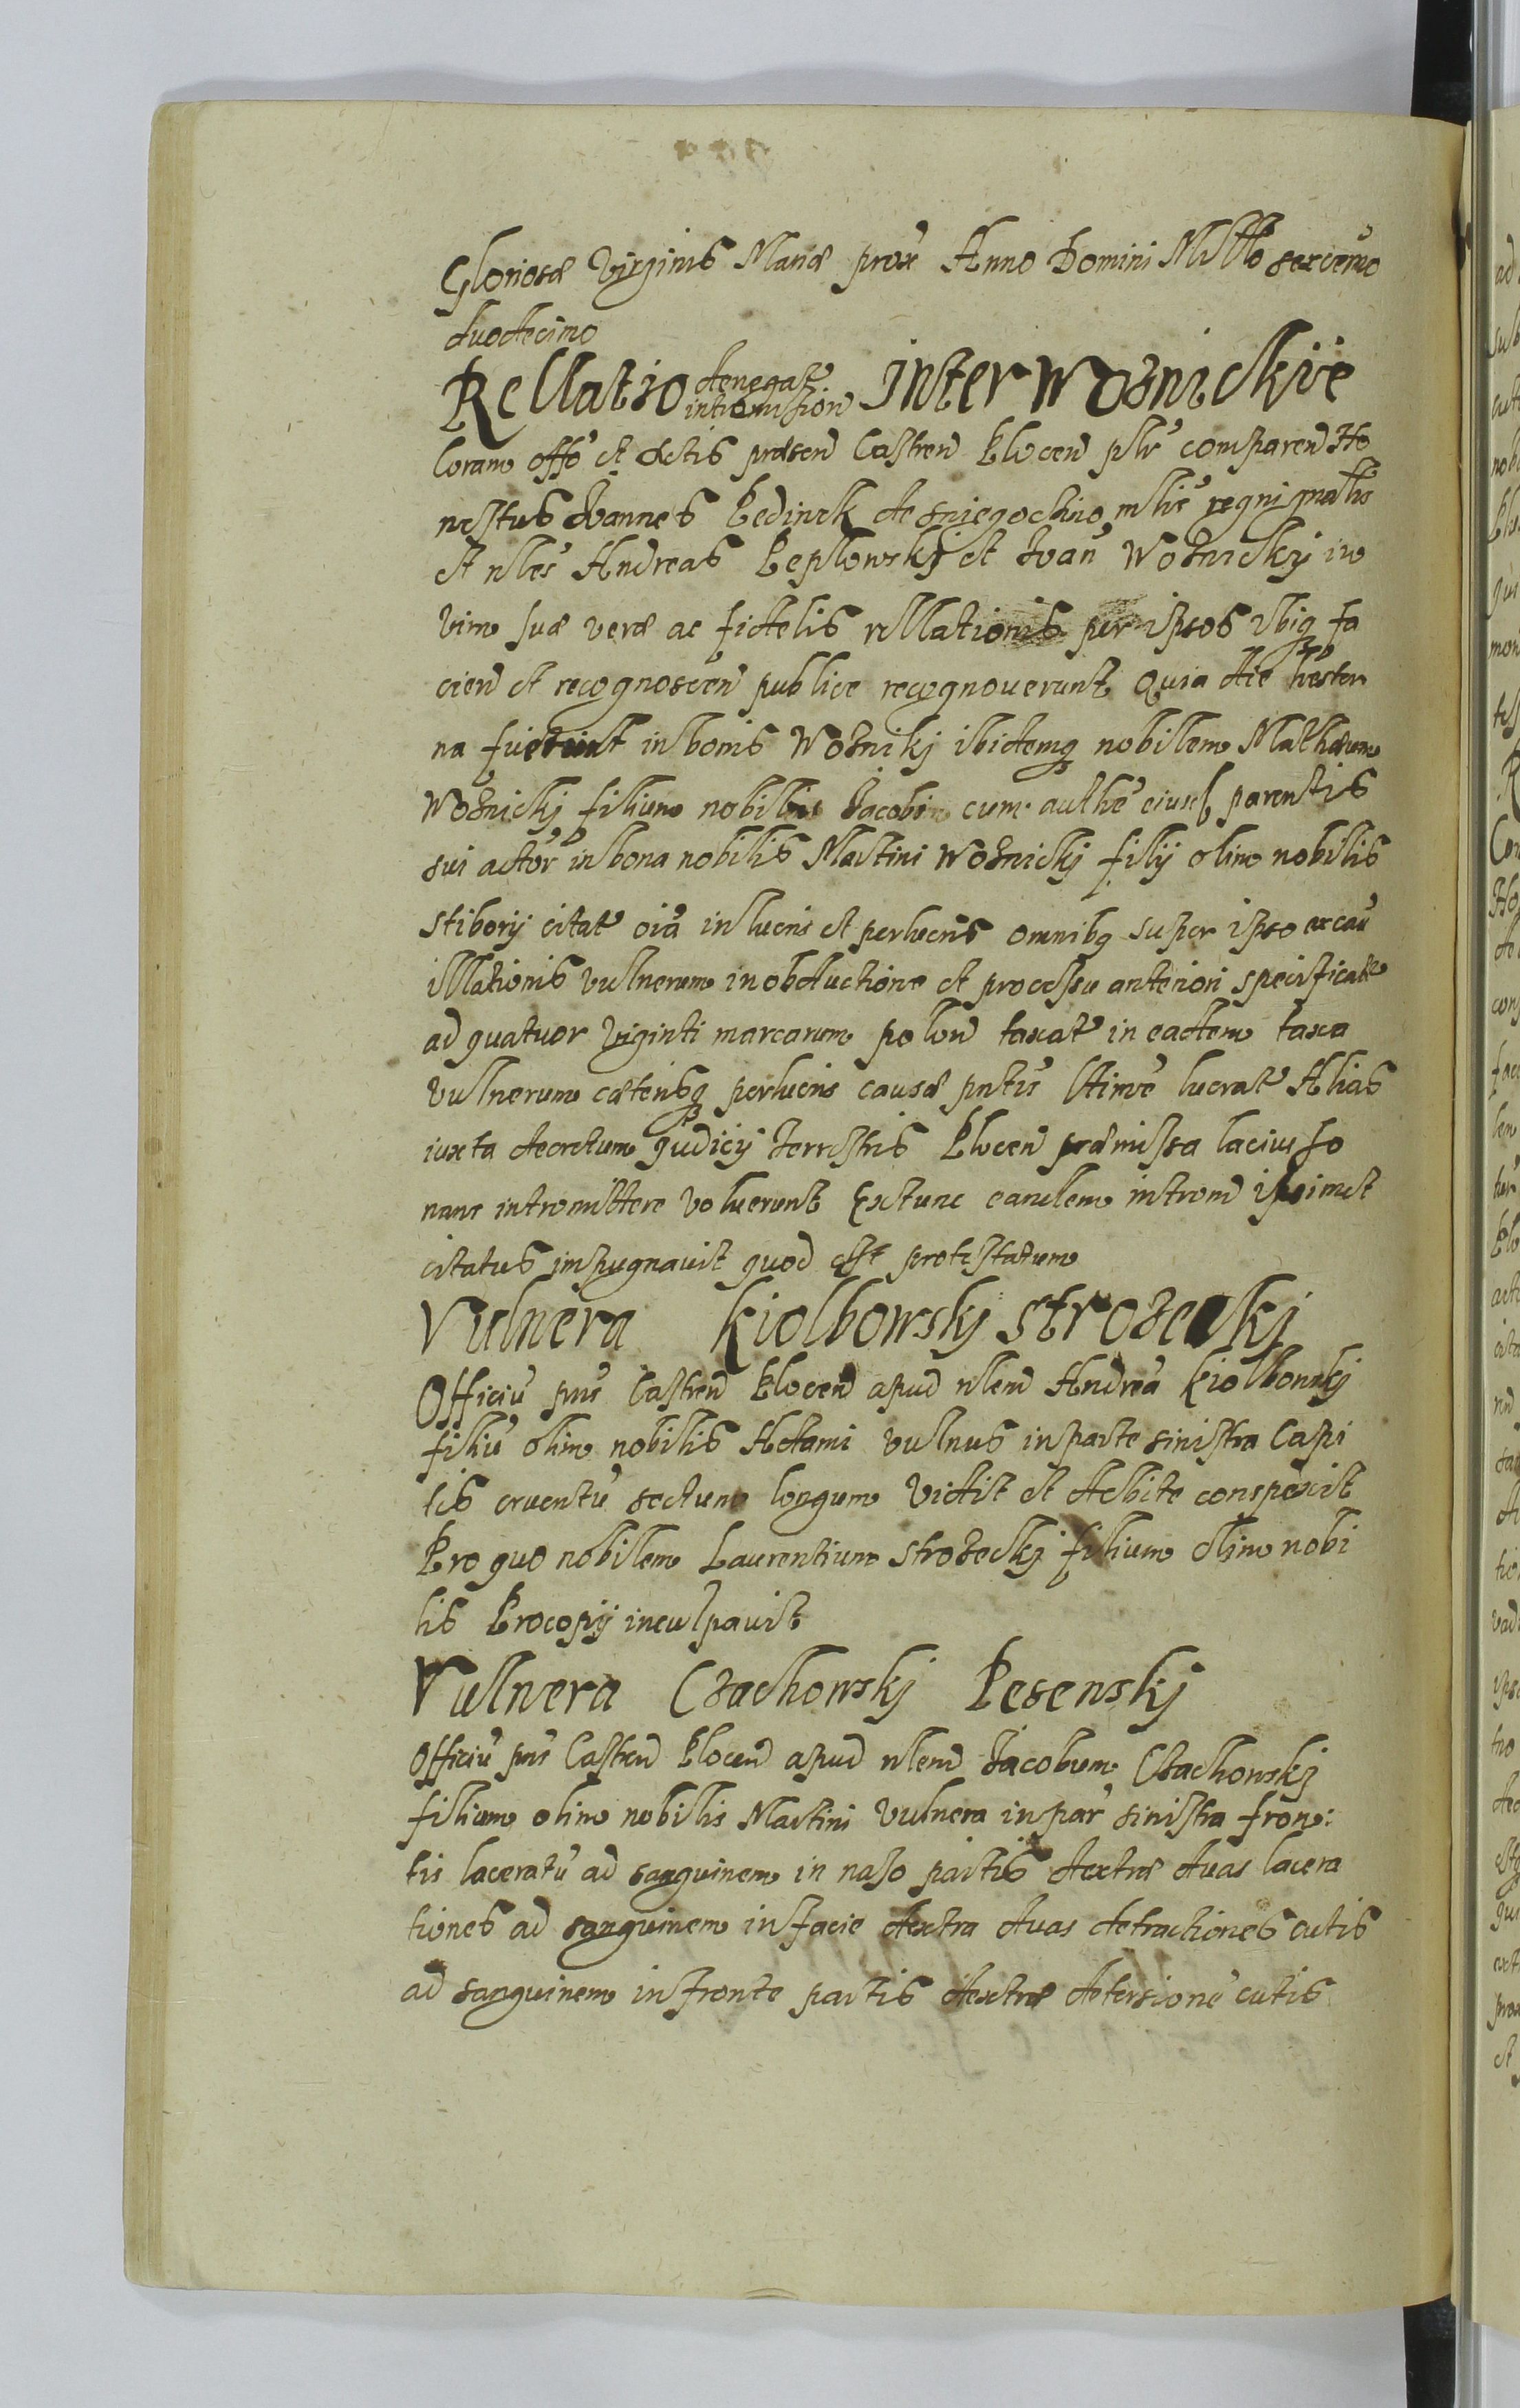 Gloriosæ Virginis Mariæ prox Anno Domini Millo sexcemo
duodecimo
Rellatio denegat intromission inter Woznickie
Coram offo et actis præsen Castren Plocen plr comparen Ho
nestus Joannes Pedinek de Sniegockino mlis regni gnalis
et nles Andreas Peplowskj et Joan Woznickij in
vim suæ veræ ac fidelis rellationis per ipsos ibiq fa
cien et recognoscen publice recognoverunt Quia die hester
na fuerunt in bonis Woznikj ibidemq nobilem Mathæum
Woznickj filium nobilis Jacobi cum authe eiusd parentis
sui actor in bona nobilis Martini Woznickj filij olim nobilis
Stiborij citat oia in lucris et perlucris omnibq super ipso ex cau
illationis vulnerum in obductione et processu anteriori specificat
ad quatuor viginti marcarum polon taxat in eadem taxa
vulnerum cæterisq perlucris causæ pntis ltime lucrat Alias
iuxta decretum Judicij Terrestris Plocen præmissa lacius so
nans intromittere voluerunt Extunc eandem introm ipsimet
citatus impugnavit quod est protestatum
Vulnera Kiolbowskj Strozeckj
Officiu pns Castren Plocen apud nlem Andrea Kiolbowskj
filiu olim nobilis Adami vulnus in parte sinistra Capi
tis cruentu sectum longum vidit et debite conspexit
Pro quo nobilem Laurentium Strozeckj filium olim nobi
lis Procopij inculpavit
Vulnera Czachowskj Pesenskj
Officiu pns Castren Plocen apud nlem Jacobum Czachowskj
filium olim nobilis Martini vulnera in par sinistra fron:
tis laceratu ad sanguinem in naso partis dextræ duas lacera
tiones ad sanguinem in facie dextra duas detractiones cutis
ad sanguinem in fronte partis dextræ detersione cutis